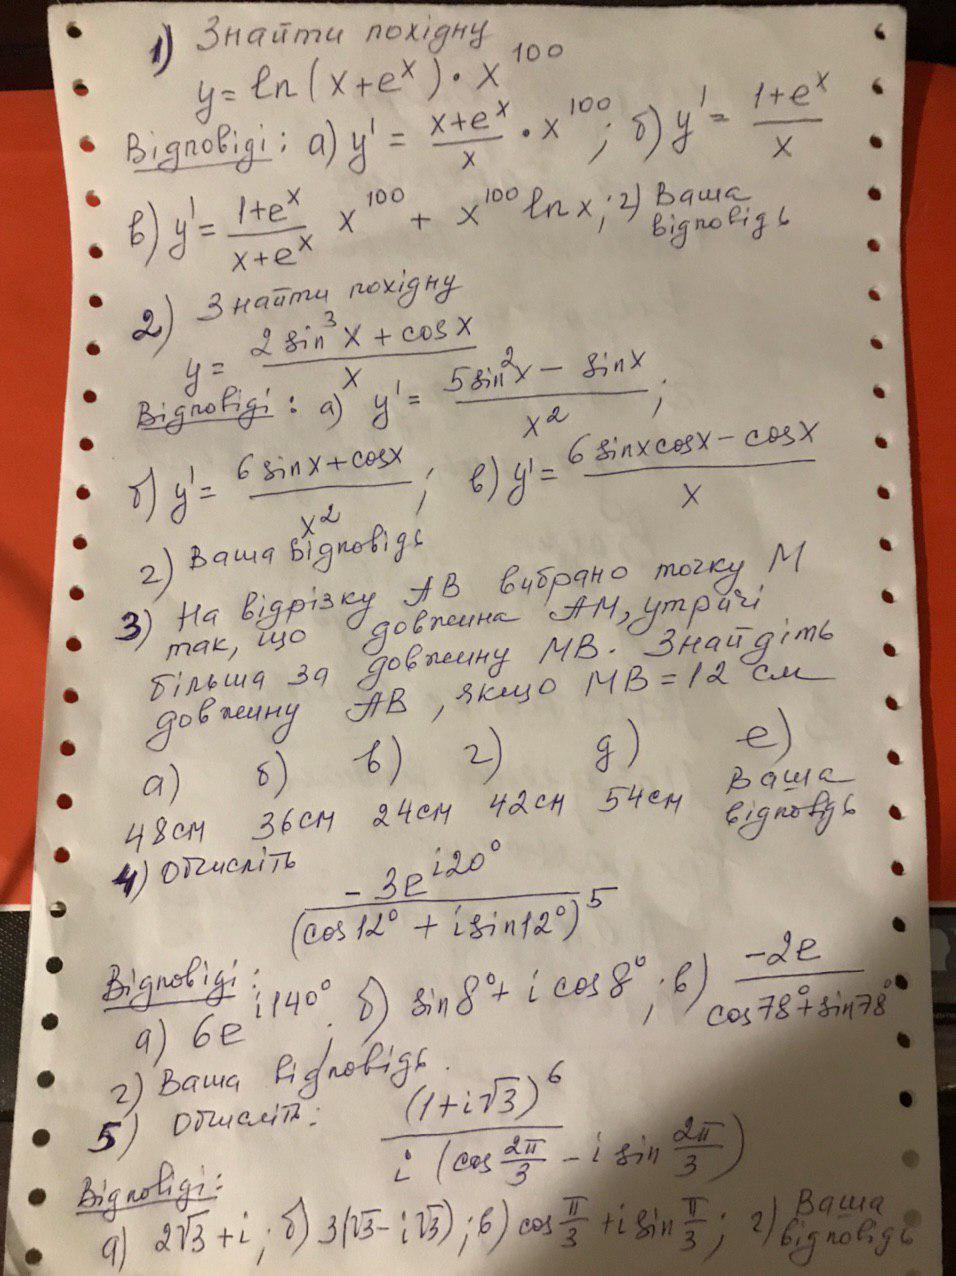 1) Знайти похідну
y = ln(x+eˣ) · x¹⁰⁰
Відповіді: а) y' = (x+eˣ)/x · x¹⁰⁰; б) y' = (1+eˣ)/x
в) y' = (1+eˣ)/(x+eˣ) x¹⁰⁰ + x¹⁰⁰ ln x; г) Ваша відповідь
2) Знайти похідну
y = (2 sin³x + cos x)/x
Відповіді: а) y' = (5 sin²x − sin x)/x²;
б) y' = (6 sin x + cos x)/x²; в) y' = (6 sin x cos x − cos x)/x
г) Ваша відповідь
3) На відрізку AB вибрано точку M
так, що довжина AM, утричі
більша за довжину MB. Знайдіть
довжину AB, якщо MB = 12 см
а) б) в) г) д) е)
48см 36см 24см 42см 54см Ваша відповідь
4) Обчисліть
(−3e^(i20°))/(cos 12° + i sin 12°)⁵
Відповіді:
а) 6e^(i140°); б) sin 8° + i cos 8°; в) (−2e)/(cos 78° + sin 78°)
г) Ваша відповідь.
5) Обчисліть: (1+i√3)⁶/(i (cos 2π/3 − i sin 2π/3))
Відповіді:
а) 2√3 + i; б) 3(√3 − i√3); в) cos π/3 + i sin π/3; г) Ваша відповідь